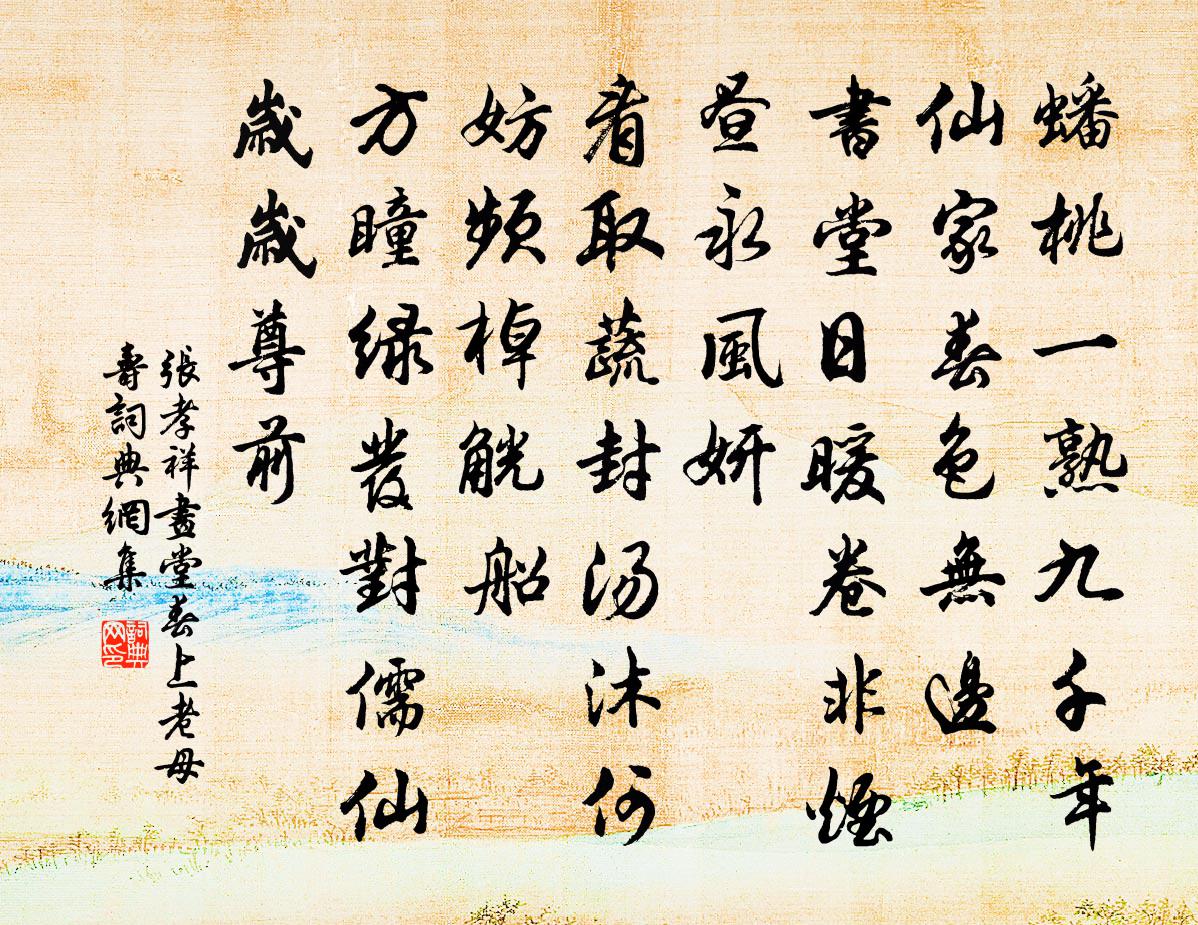 蟠桃一熟九千年
仙家春色無邊
書堂日暖卷非煙
昼永風妍
看取蔬封湯沐何
妨頻棹觥船
方瞳綠發對儒仙
歲歲尊前
張孝祥畫堂春上老母
壽詞典網集
詞典网印